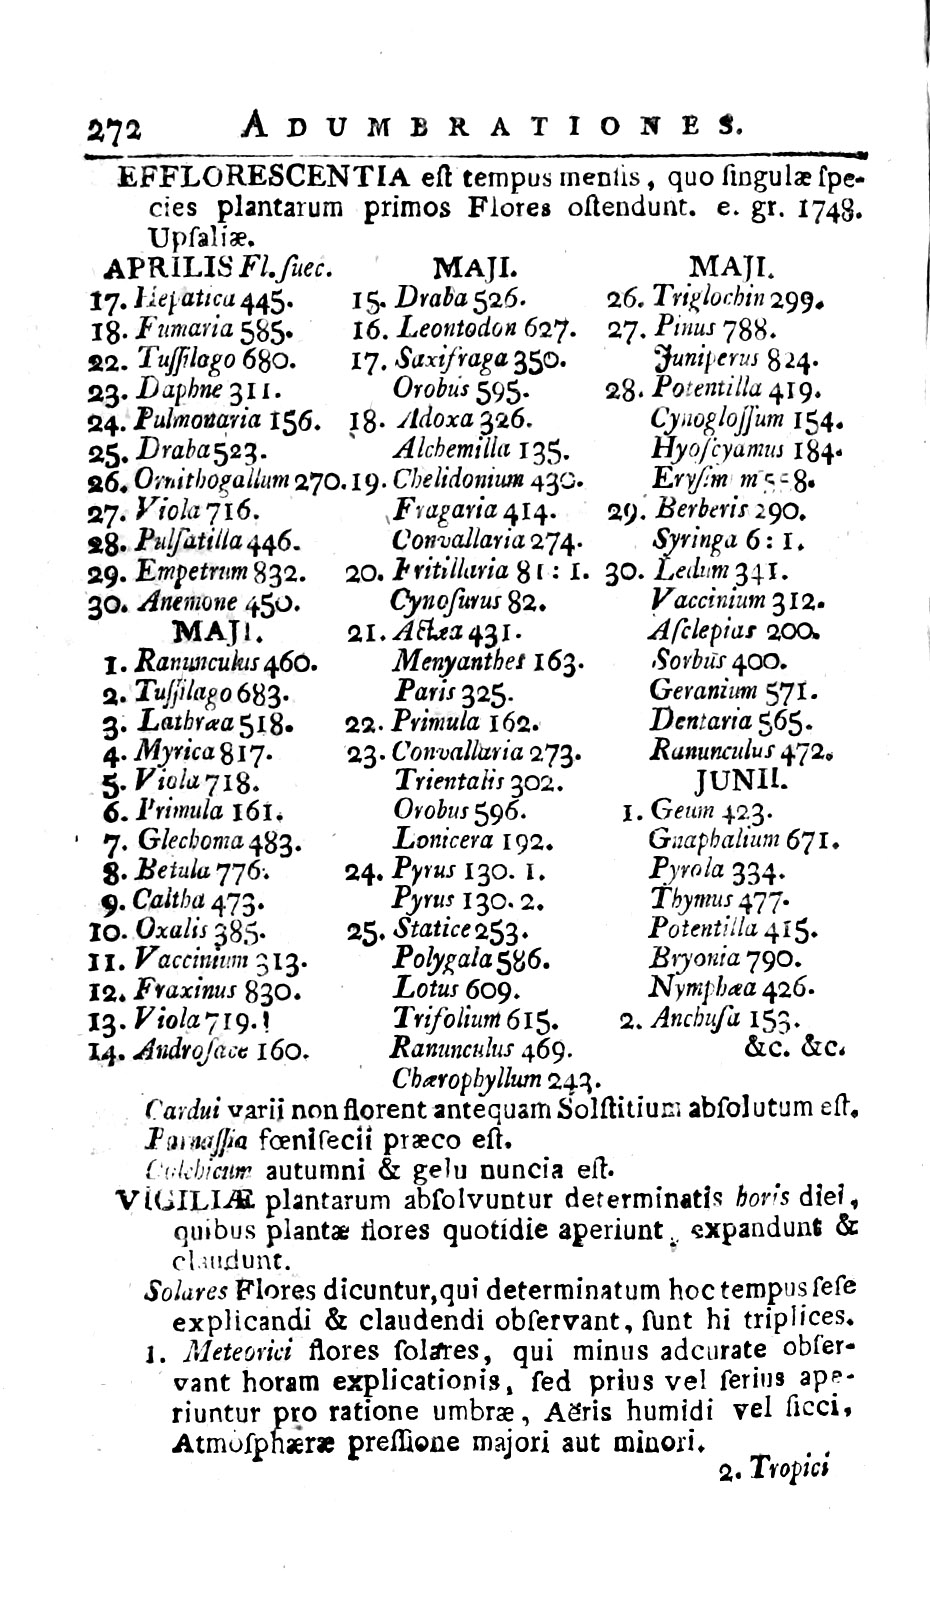 272 ADUMBRATIONES.
EFFLORESCENTIA eſt tempus menſis, quo ſingulæ ſpe-
cies plantarum primos Flores oſtendunt. e. gr. 1748.
Upſaliæ.
APRILIS Fl. ſuec.
17. Hepatica 445.
18. Fumaria 585.
22. Tuſſilago 680.
23. Daphne 311.
24. Pulmonaria 156.
25. Draba 523.
26. Ornithogallum 270.
27. Viola 716.
28. Pulſatilla 446.
29. Empetrum 832.
30. Anemone 450.
MAJI.
1. Ranunculus 460.
2. Tuſſilago 683.
3. Lathræa 518.
4. Myrica 817.
5. Viola 718.
6. Primula 161.
7. Glechoma 483.
8. Betula 776.
9. Caltha 473.
10. Oxalis 385.
11. Vaccinium 313.
12. Fraxinus 830.
13. Viola 719.
14. Androſace 160.
MAJI.
15. Draba 526.
16. Leontodon 627.
17. Saxifraga 350.
Orobus 595.
18. Adoxa 326.
Alchemilla 135.
19. Chelidonium 430.
Fragaria 414.
Convallaria 274.
20. Fritillaria 81 : 1.
Cynoſurus 82.
21. Actæa 431.
Menyanthes 163.
Paris 325.
22. Primula 162.
23. Convallaria 273.
Trientalis 302.
Orobus 596.
Lonicera 192.
24. Pyrus 130. 1.
Pyrus 130. 2.
25. Statice 253.
Polygala 586.
Lotus 609.
Trifolium 615.
Ranunculus 469.
Chærophyllum 243.
MAJI.
26. Triglochin 299.
27. Pinus 788.
Juniperus 824.
28. Potentilla 419.
Cynogloſſum 154.
Hyoſcyamus 184.
29. Berberis 290.
Syringa 6 : 1.
30. Ledum 341.
Vaccinium 312.
Aſclepias 200.
Sorbus 400.
Geranium 571.
Dentaria 565.
Ranunculus 472.
JUNII.
1. Geum 423.
Gnaphalium 671.
Pyrola 334.
Thymus 477.
Potentilla 415.
Bryonia 790.
Nymphæa 426.
2. Anchuſa 153.
&c. &c.
Cardui varii non florent antequam Solſtitium abſolutum eſt.
Parnaſſia fœniſecii præco eſt.
Colchicum autumni & gelu nuncia eſt.
VIGILIÆ plantarum abſolvuntur determinatis horis diei,
quibus plantæ flores quotidie aperiunt, expandunt &
claudunt.
Solares Flores dicuntur, qui determinatum hoc tempus ſeſe
explicandi & claudendi obſervant, ſunt hi triplices.
1. Meteorici flores ſolares, qui minus adcurate obſer-
vant horam explicationis, ſed prius vel ſerius ape-
riuntur pro ratione umbræ, Aëris humidi vel ſicci,
Atmoſphæræ preſſione majori aut minori.
2. Tropici